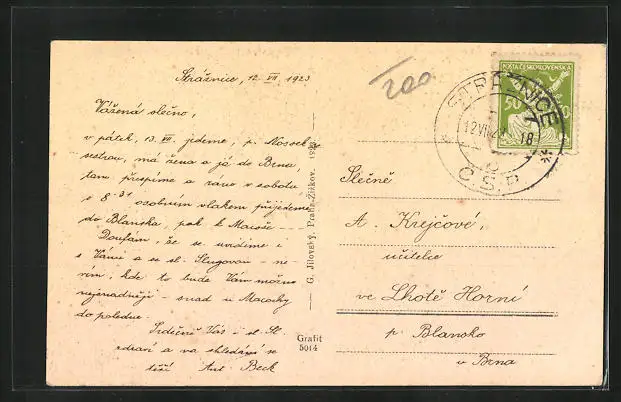 Strážnice, 12 VII 1923
Vážená slečno,
v pátek, 13. VII. jedeme, p. Nosek
sestrou, má žena a já do Brna,
tam přespíme a ráno v sobotu
s 8-31 osobním vlakem přijedeme
do Blanska, pak k Macoše
Doufám, že se uvidíme i
s Vámi a se sl. 
rím, kde to bude Vám možno
nejsnadněji - snad u Macochy
do poledne.
Srdečně Vás - sl. Sl.
zdraví a na shledání se
těší Ant. Beck
G. Jilovský, Praha-Žižkov.
Grafit
5014
200
POŠTA ČESKOSLOVENSKÁ
50
STRÁŽNICE
12 VII 23 18
Č.S.P.
Slečně
A. Krejčové,
učitelce
ve Lhotě Horní
p. Blansko
u Brna